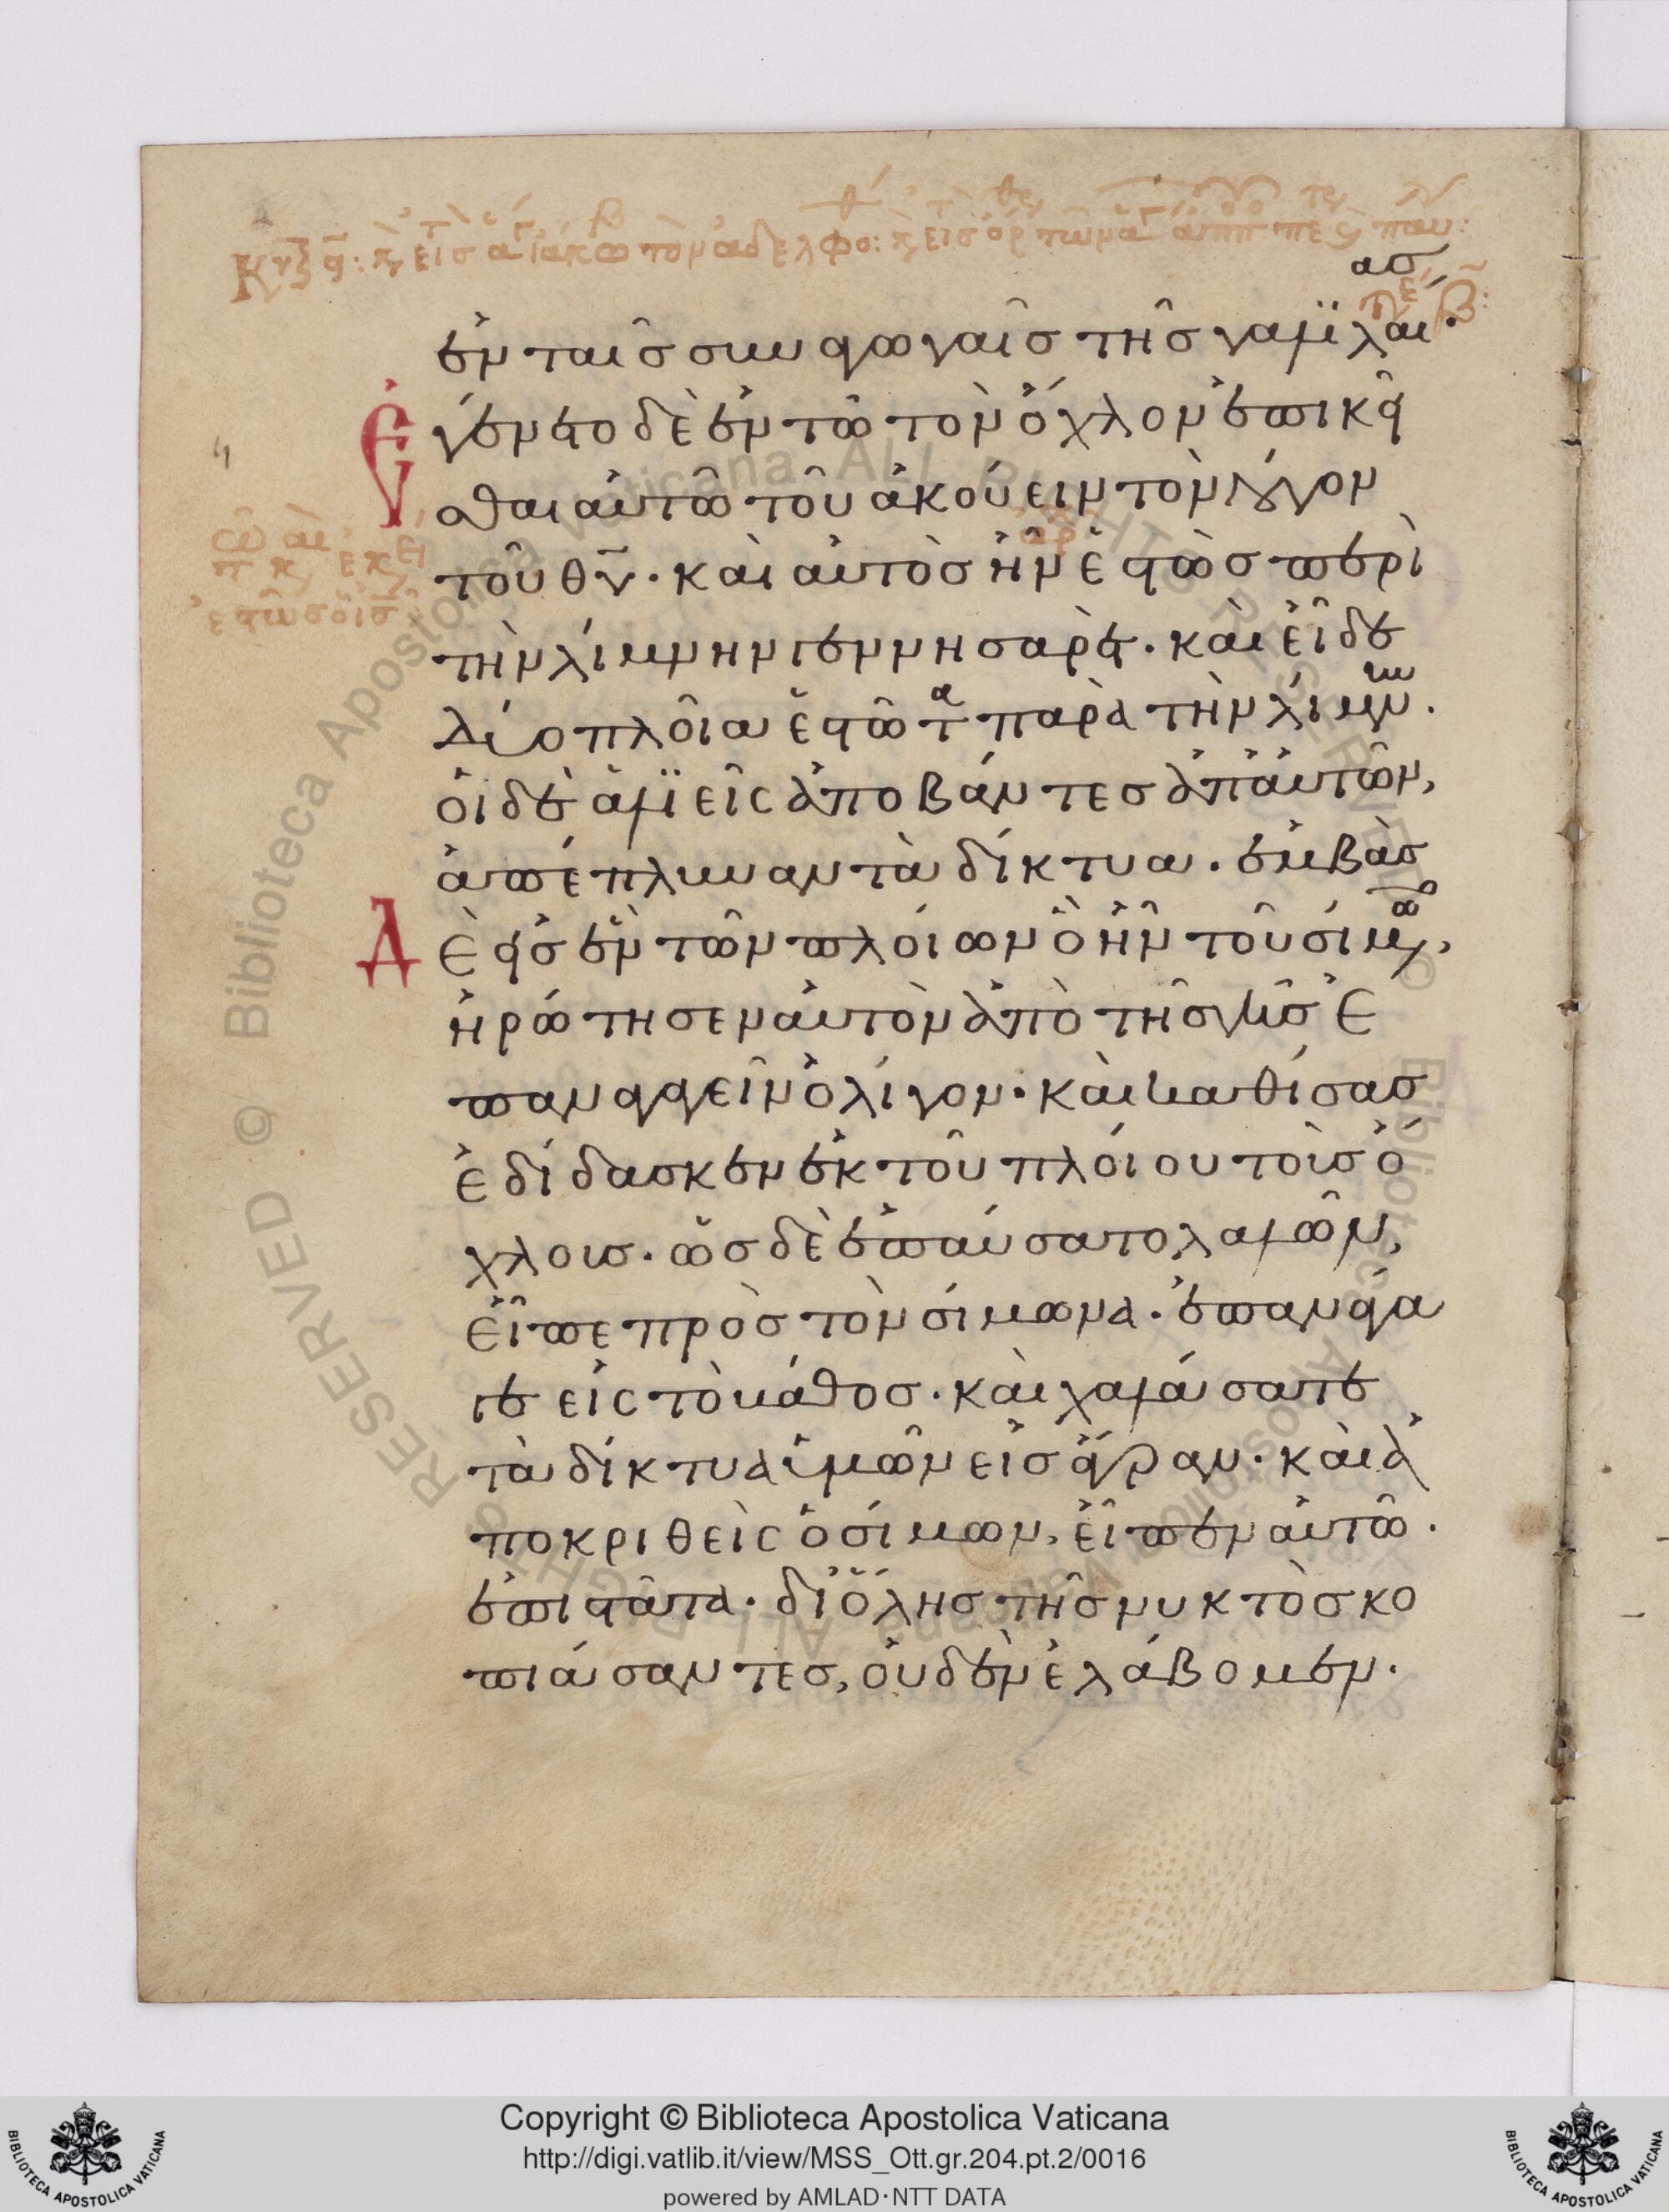 ἐν ταῖς συναγωγαῖς τῆς γαλιλαίας·
Ἐγένετο δὲ ἐν τῶ τὸν ὄχλον ἐπικεῖ
σθαι αὐτῶ τοῦ ἀκούειν τὸν λόγον
τοῦ θυ̅· καὶ αὐτὸς ἦν ἑστὼς παρὰ
τὴν λίμνην γεννησαρέτ· καὶ εἶδε
δύο πλοῖα ἑστῶτα παρὰ τὴν λίμνην·
οἱ δὲ ἁλιεῖς ἀποβάντες ἀπ' αὐτῶν,
ἀπέπλυναν τὰ δίκτυα· ἐμβὰς
Δὲ εἰς ἓν τῶν πλοίων ὃ ἦν τοῦ σίμωνος,
ἠρώτησεν αὐτὸν ἀπὸ τῆς γῆς ἐ
παναγαγεῖν ὀλίγον· καὶ καθίσας
ἐδίδασκεν ἐκ τοῦ πλοίου τοὺς ὄ
χλους· ὡς δὲ ἐπαύσατο λαλῶν,
εἶπε πρὸς τὸν σίμωνα· ἐπανάγα
γε εἰς τὸ βάθος· καὶ χαλάσατε
τὰ δίκτυα ὑμῶν εἰς ἄγραν· καὶ ἀ
ποκριθεὶς ὁ σίμων, εἶπεν αὐτῶ·
ἐπιστάτα· δι' ὅλης τῆς νυκτὸς κο
πιάσαντες, οὐδὲν ἐλάβομεν·
Copyright © Biblioteca Apostolica Vaticana
http://digi.vatlib.it/view/MSS_Ott.gr.204.pt.2/0016
powered by AMLAD·NTT DATA